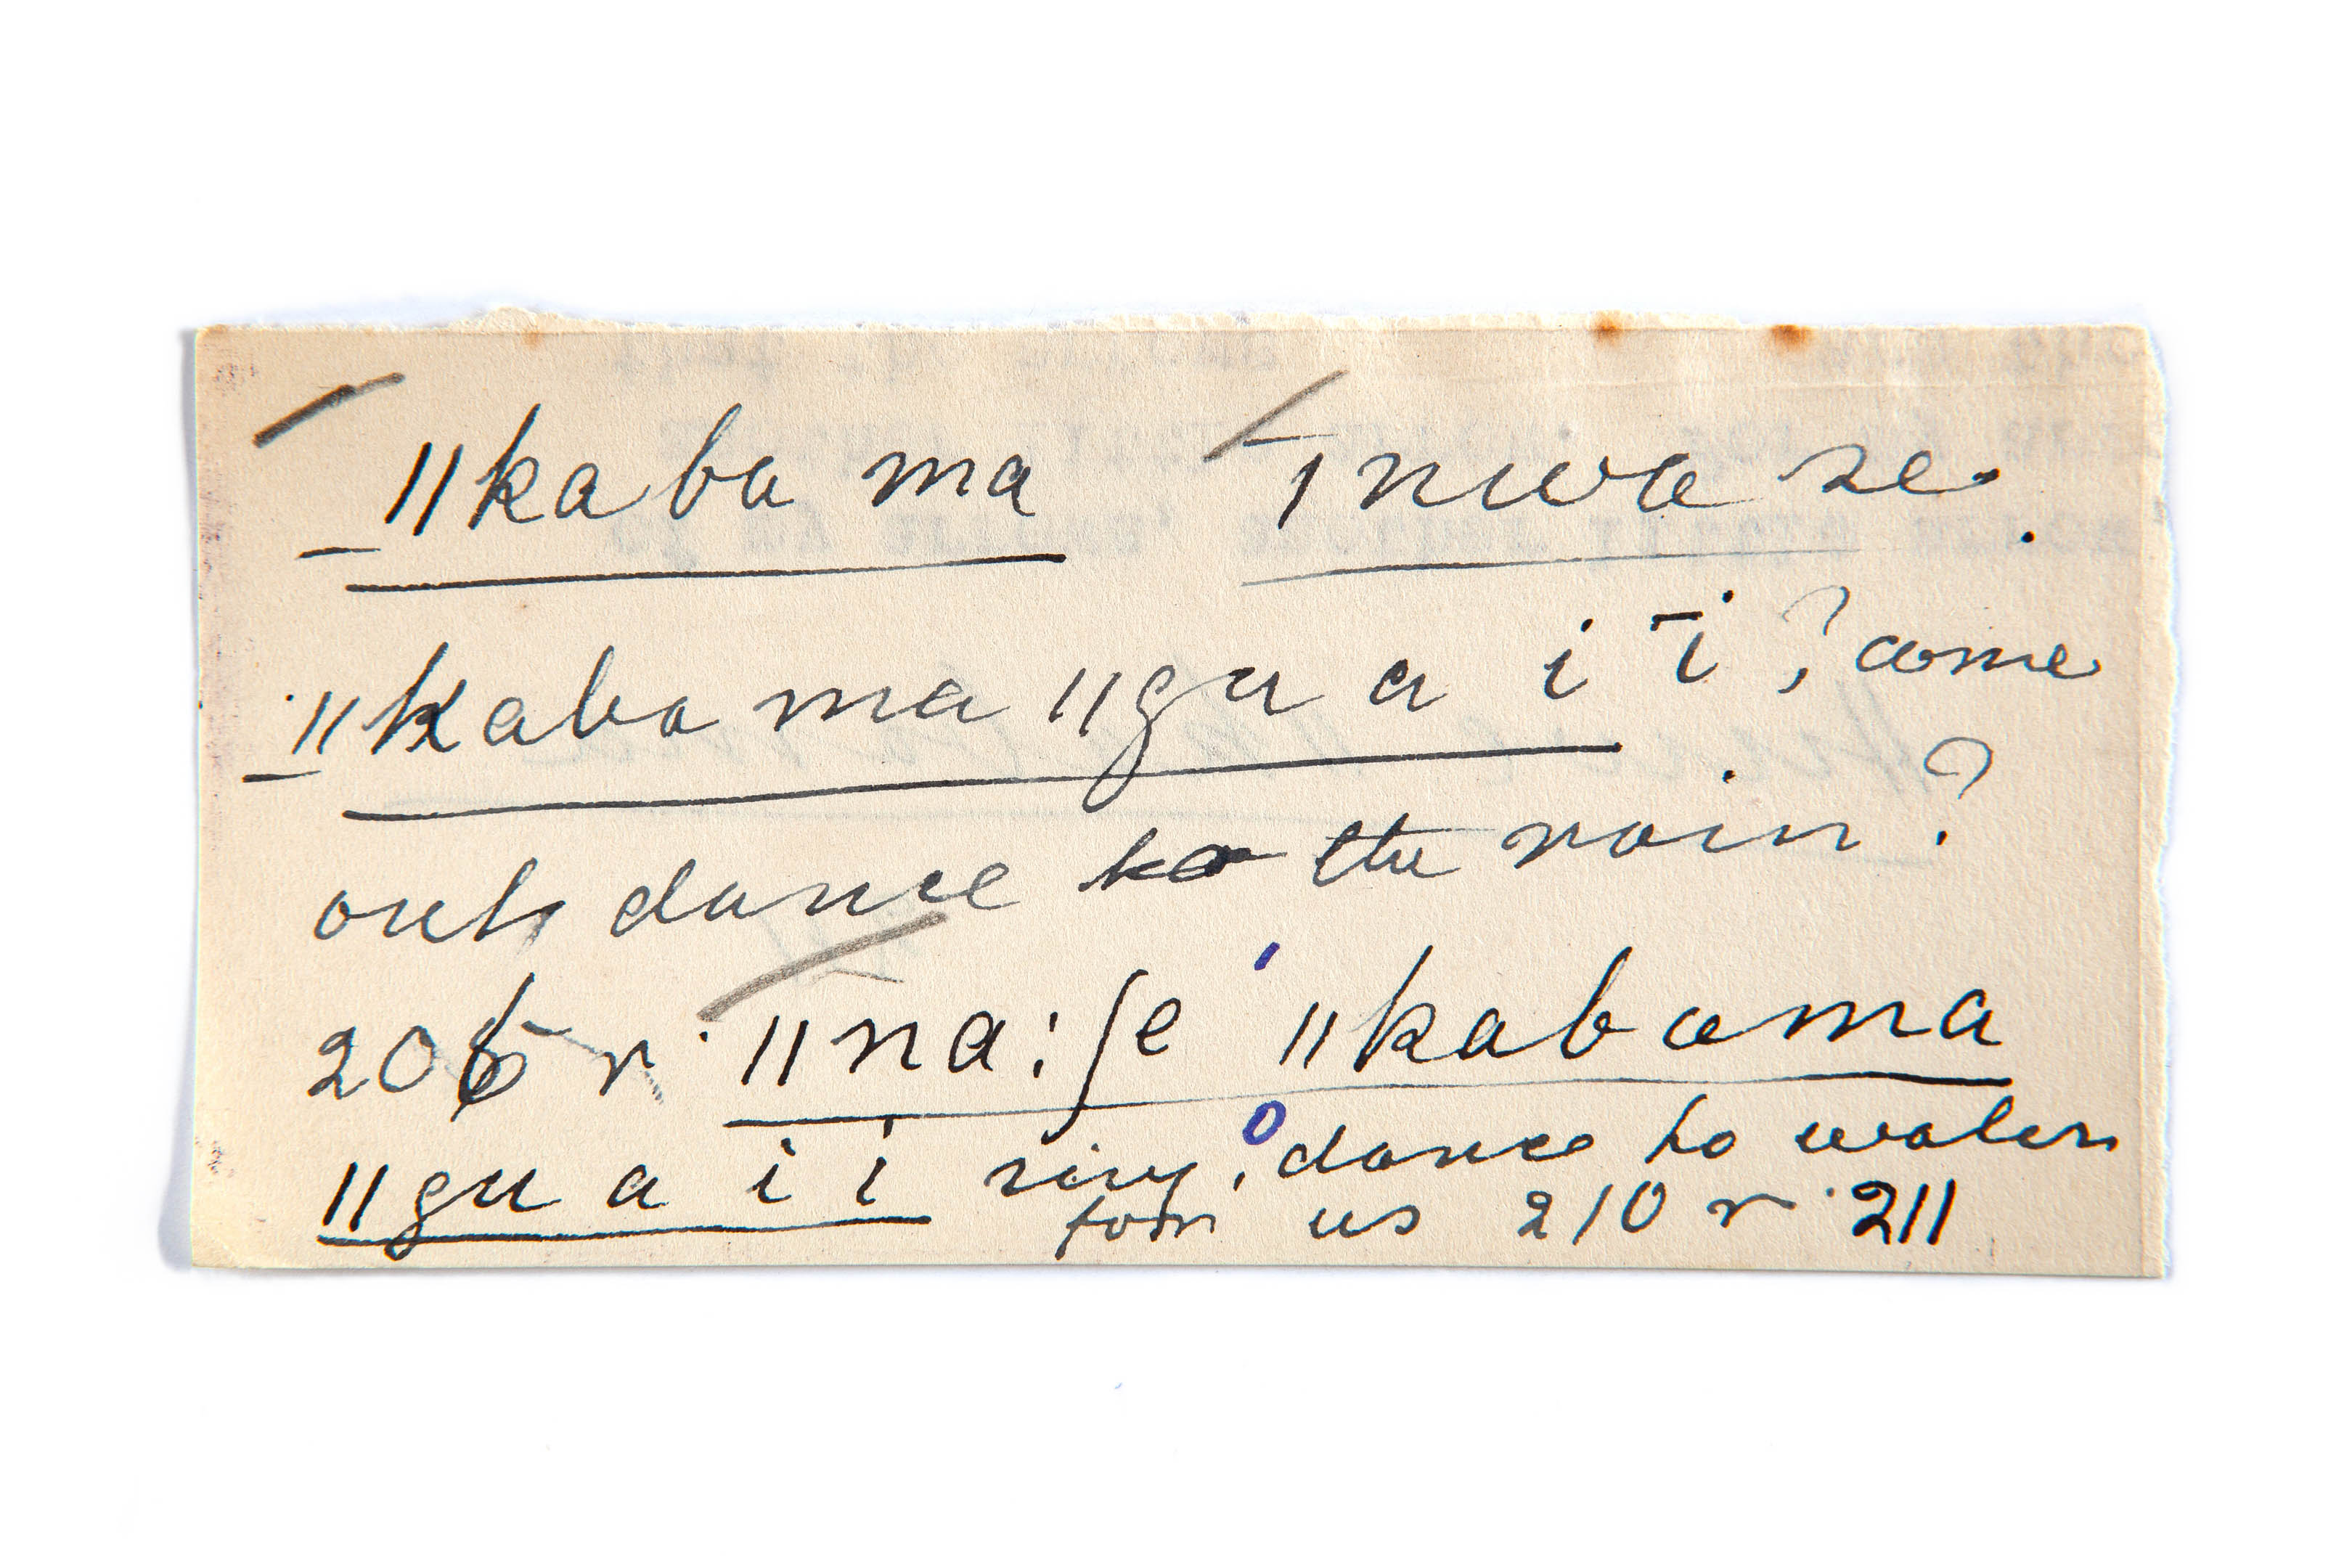 ǁkaba ma ǀnwa se.
ǁkaba ma ǁgu a i ī ? come
out, dance to the rain?
206 r. ǁna:ʃe ǁkabama
ǁgu a i i sing, dance to water
for us 210 r 211